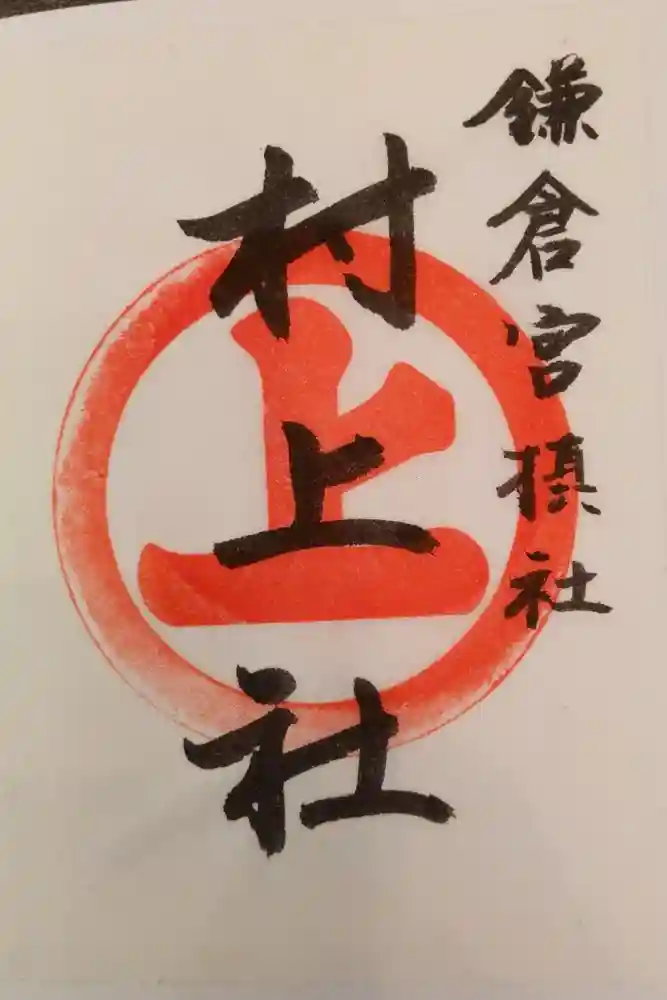 鎌倉宮摂社
村上社
上